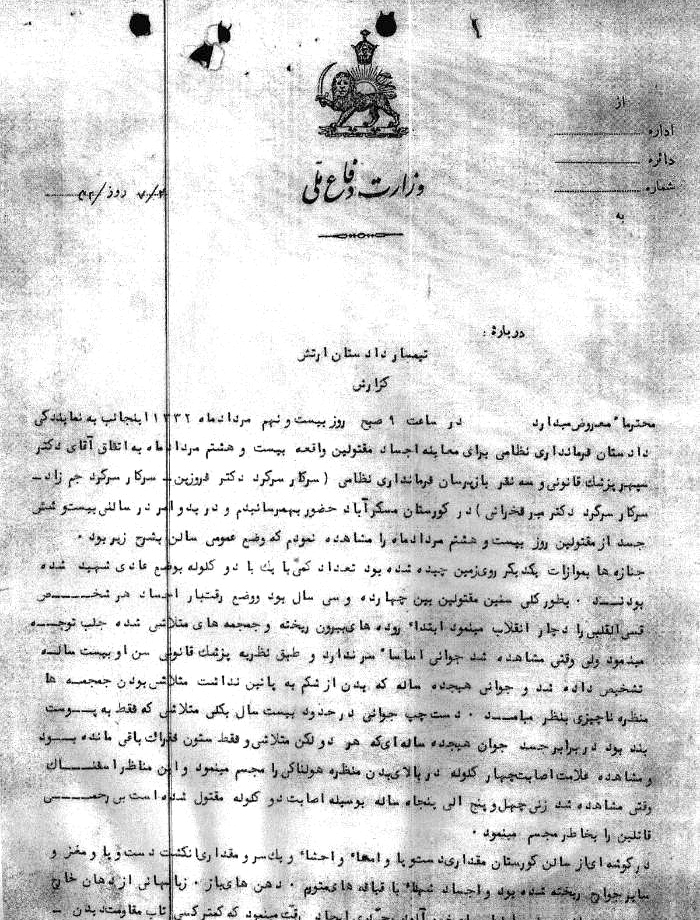 از
اداره
دائره
شماره
به
وزارت دفاع ملی
روز
درباره :
تیمسار دادستان ارتش
گزارش
محترما" معروض میدارد در ساعت ۹ صبح روز بیست و نهم مرداد ماه ۱۳۳۲ اینجانب به نمایندگی
دادستان فرمانداری نظامی برای معاینه اجساد مقتولین واقعه بیست و هشتم مرداد ماه به اتفاق آقای دکتر
سپهر پزشک قانونی و سه نفر بازپرسان فرمانداری نظامی ( سرکار سرگرد دکتر فروزین ـ سرکار سرگرد جم زاد ـ
سرکار سرگرد دکتر میر فخرائی ) در گورستان مسگرآباد حضور بهمرسانیدم و در بدو امر در سالنی بیست و شش
جسد از مقتولین روز بیست و هشتم مرداد ماه را مشاهده نمودم که وضع عمومی سالن بشرح زیر بود .
جنازه ها بموازات یکدیگر روی زمین چیده شده بود تعداد کمی با یک یا دو گلوله بوضع عادی شهید شده
بودند . بطور کلی سنین مقتولین بین چهارده و سی سال بود و وضع رقت بار اجساد هر شخص
قسی القلبی را دچار انقلاب مینمود ابتدا" روده های بیرون ریخته و جمجمه های متلاشی شده جلب توجه
مینمود ولی وقتی مشاهده شد جوانی اساسا" سر ندارد و طبق نظریه پزشک قانونی سن او بیست ساله
تشخیص داده شد و جوانی هیجده ساله که بدن از شکم به پائین نداشت متلاشی بودن جمجمه ها
منظره ناچیزی بنظر میامد . دست چپ جوانی در حدود بیست سال بکلی متلاشی که فقط به پوست
بند بود در برابر جسد جوان هیجده ساله ای که هر دو لگن متلاشی و فقط ستون فقرات باقی مانده بود
و مشاهده علامت اصابت چهار گلوله در بالای بدن منظره هولناکی را مجسم مینمود و این مناظر اسفناک
وقتی مشاهده شد زنی چهل و پنج الی پنجاه ساله بوسیله اصابت دو گلوله مقتول شده است بی رحمی
قاتلین را بخاطر مجسم مینمود .
در گوشه ای از سالن گورستان مقداری دست و پا و امعاء و احشاء و یک سر و مقداری انگشت دست و پا و مغز و
سایر جوارح ریخته شده بود و اجساد شهداء با قیافه های متورم . دهن های باز . زبانهائی از دهان خارج
رقت مینمود که کمتر کسی تاب مقاومت دیدن ـ